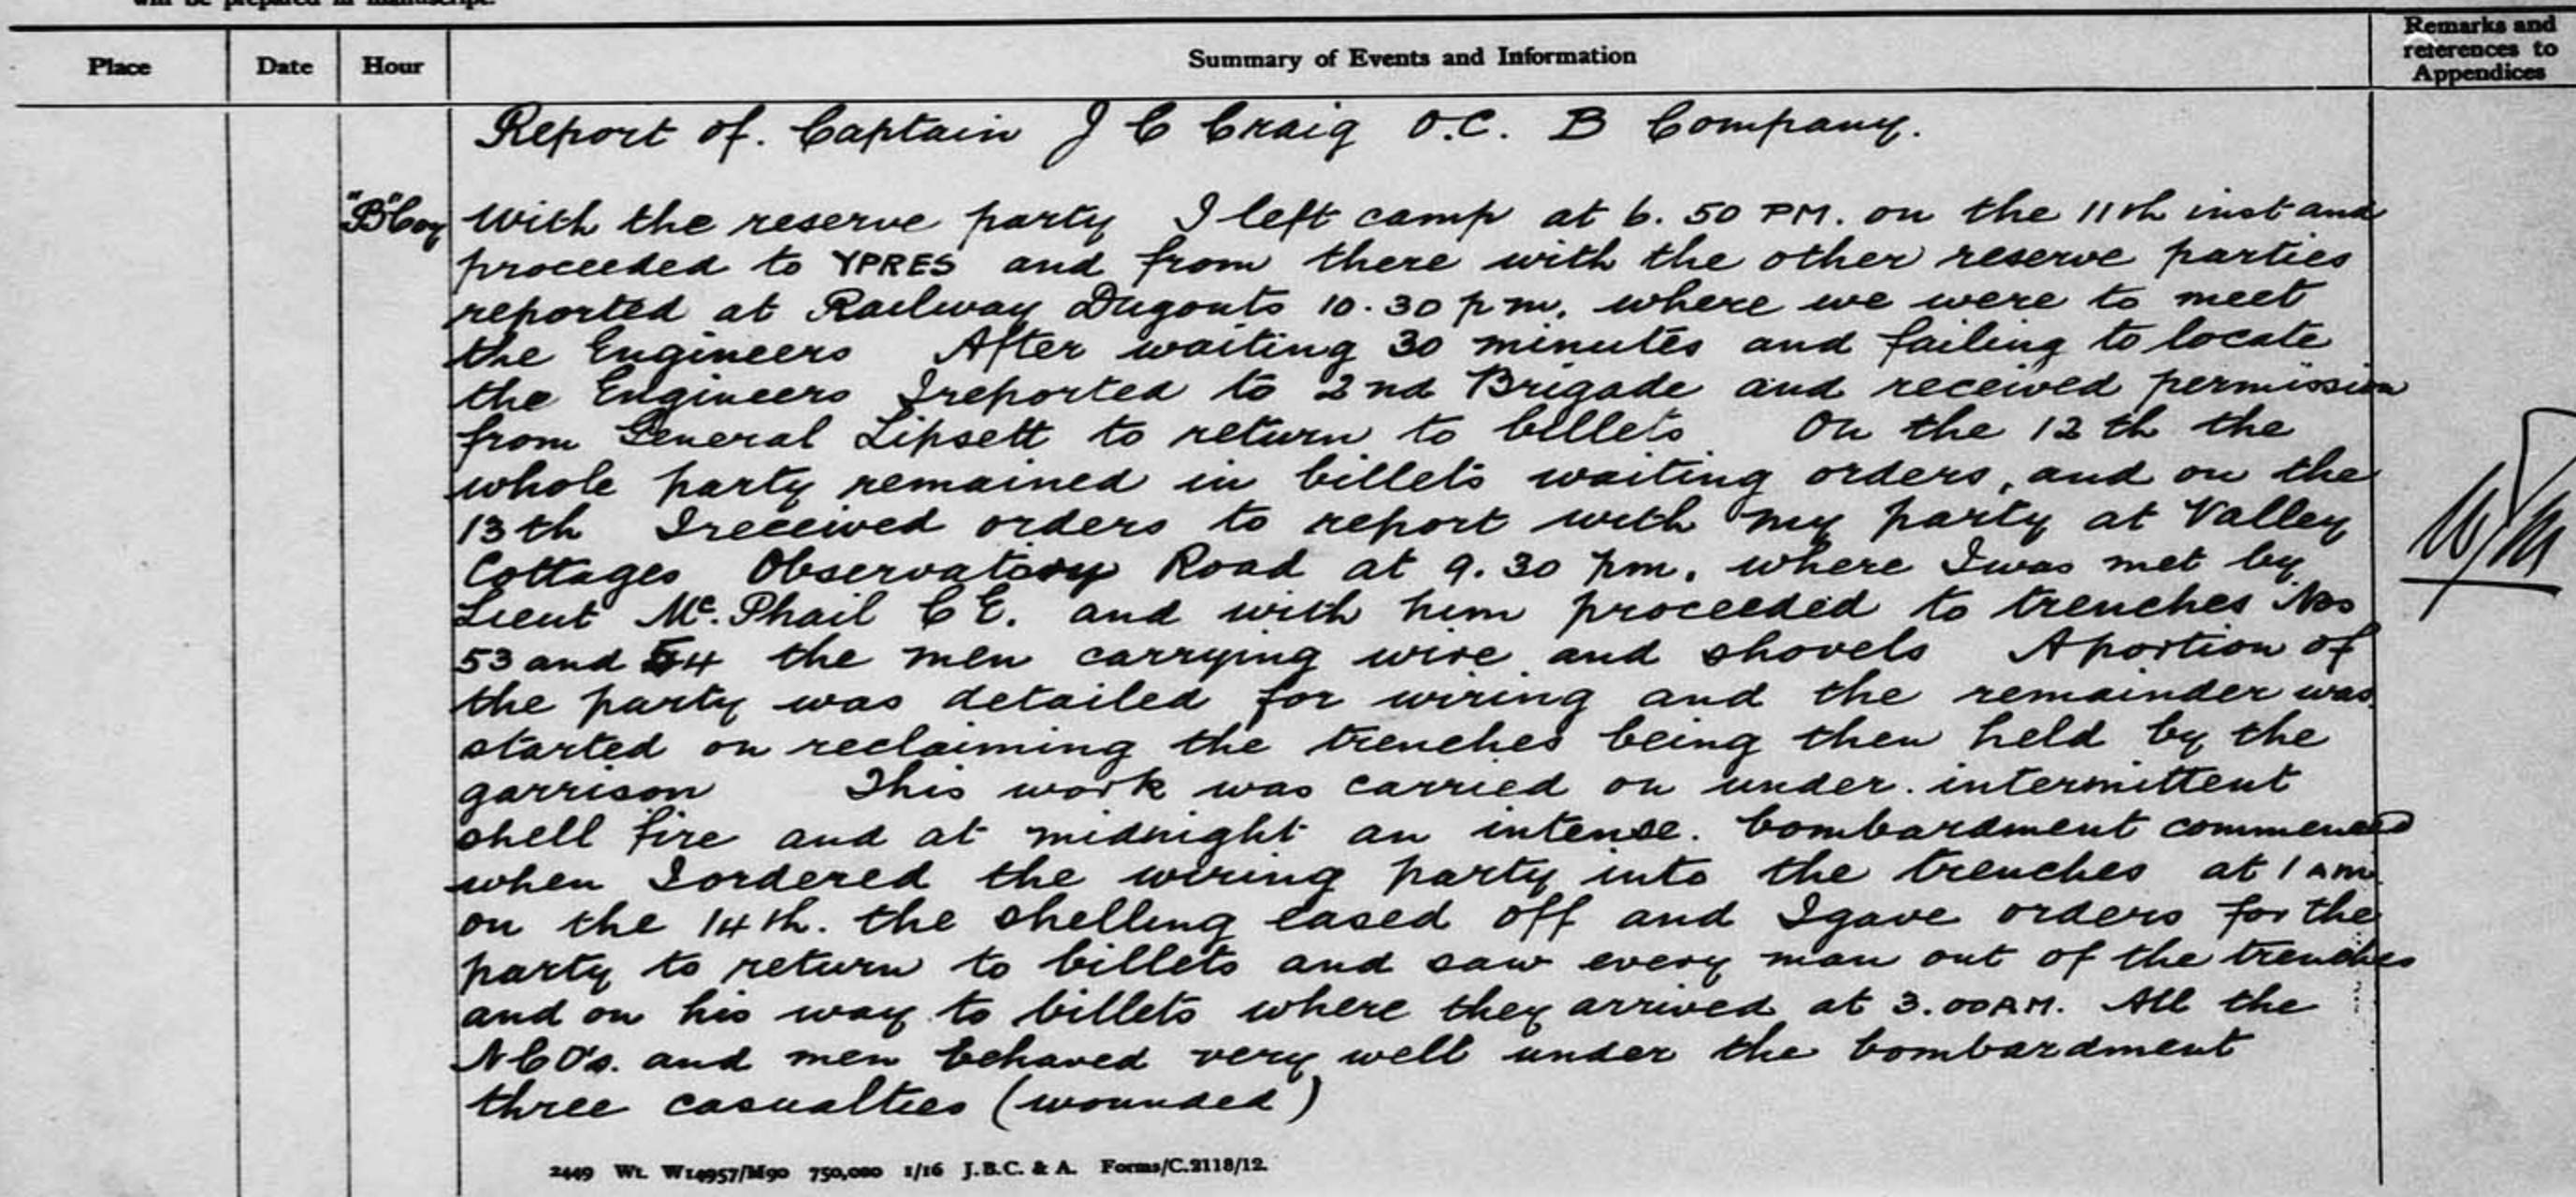 will be prepared in manuscript.
Place Date Hour Summary of Events and Information Remarks and references to Appendices
Report of. Captain J C Craig O.C. B Company.
"B" Coy With the reserve party I left camp at 6.50 PM. on the 11th inst and
proceeded to YPRES and from there with the other reserve parties
reported at Railway Dugouts 10.30 pm. where we were to meet
the Engineers After waiting 30 minutes and failing to locate
the Engineers I reported to 2nd Brigade and received permission
from General Lipsett to return to billets On the 12th the
whole party remained in billets waiting orders, and on the
13th I received orders to report with my party at Valley
Cottages Observatory Road at 9.30 pm. where I was met by
Lieut Mc. Phail C E. and with him proceeded to trenches Nos
53 and 54 the men carrying wire and shovels A portion of
the party was detailed for wiring and the remainder was
started on reclaiming the trenches being then held by the
garrison This work was carried on under. intermittent
shell fire and at midnight an intense. bombardment commenced
when I ordered the wiring party into the trenches at 1 am
on the 14th. the shelling eased off and I gave orders for the
party to return to billets and saw every man out of the trenches
and on his way to billets where they arrived at 3.00 AM. All the
N C O's. and men behaved very well under the bombardment
three casualties (wounded)
2449 Wt. W14957/M90 750,000 1/16 J.B.C. & A. Forms/C.2118/12.